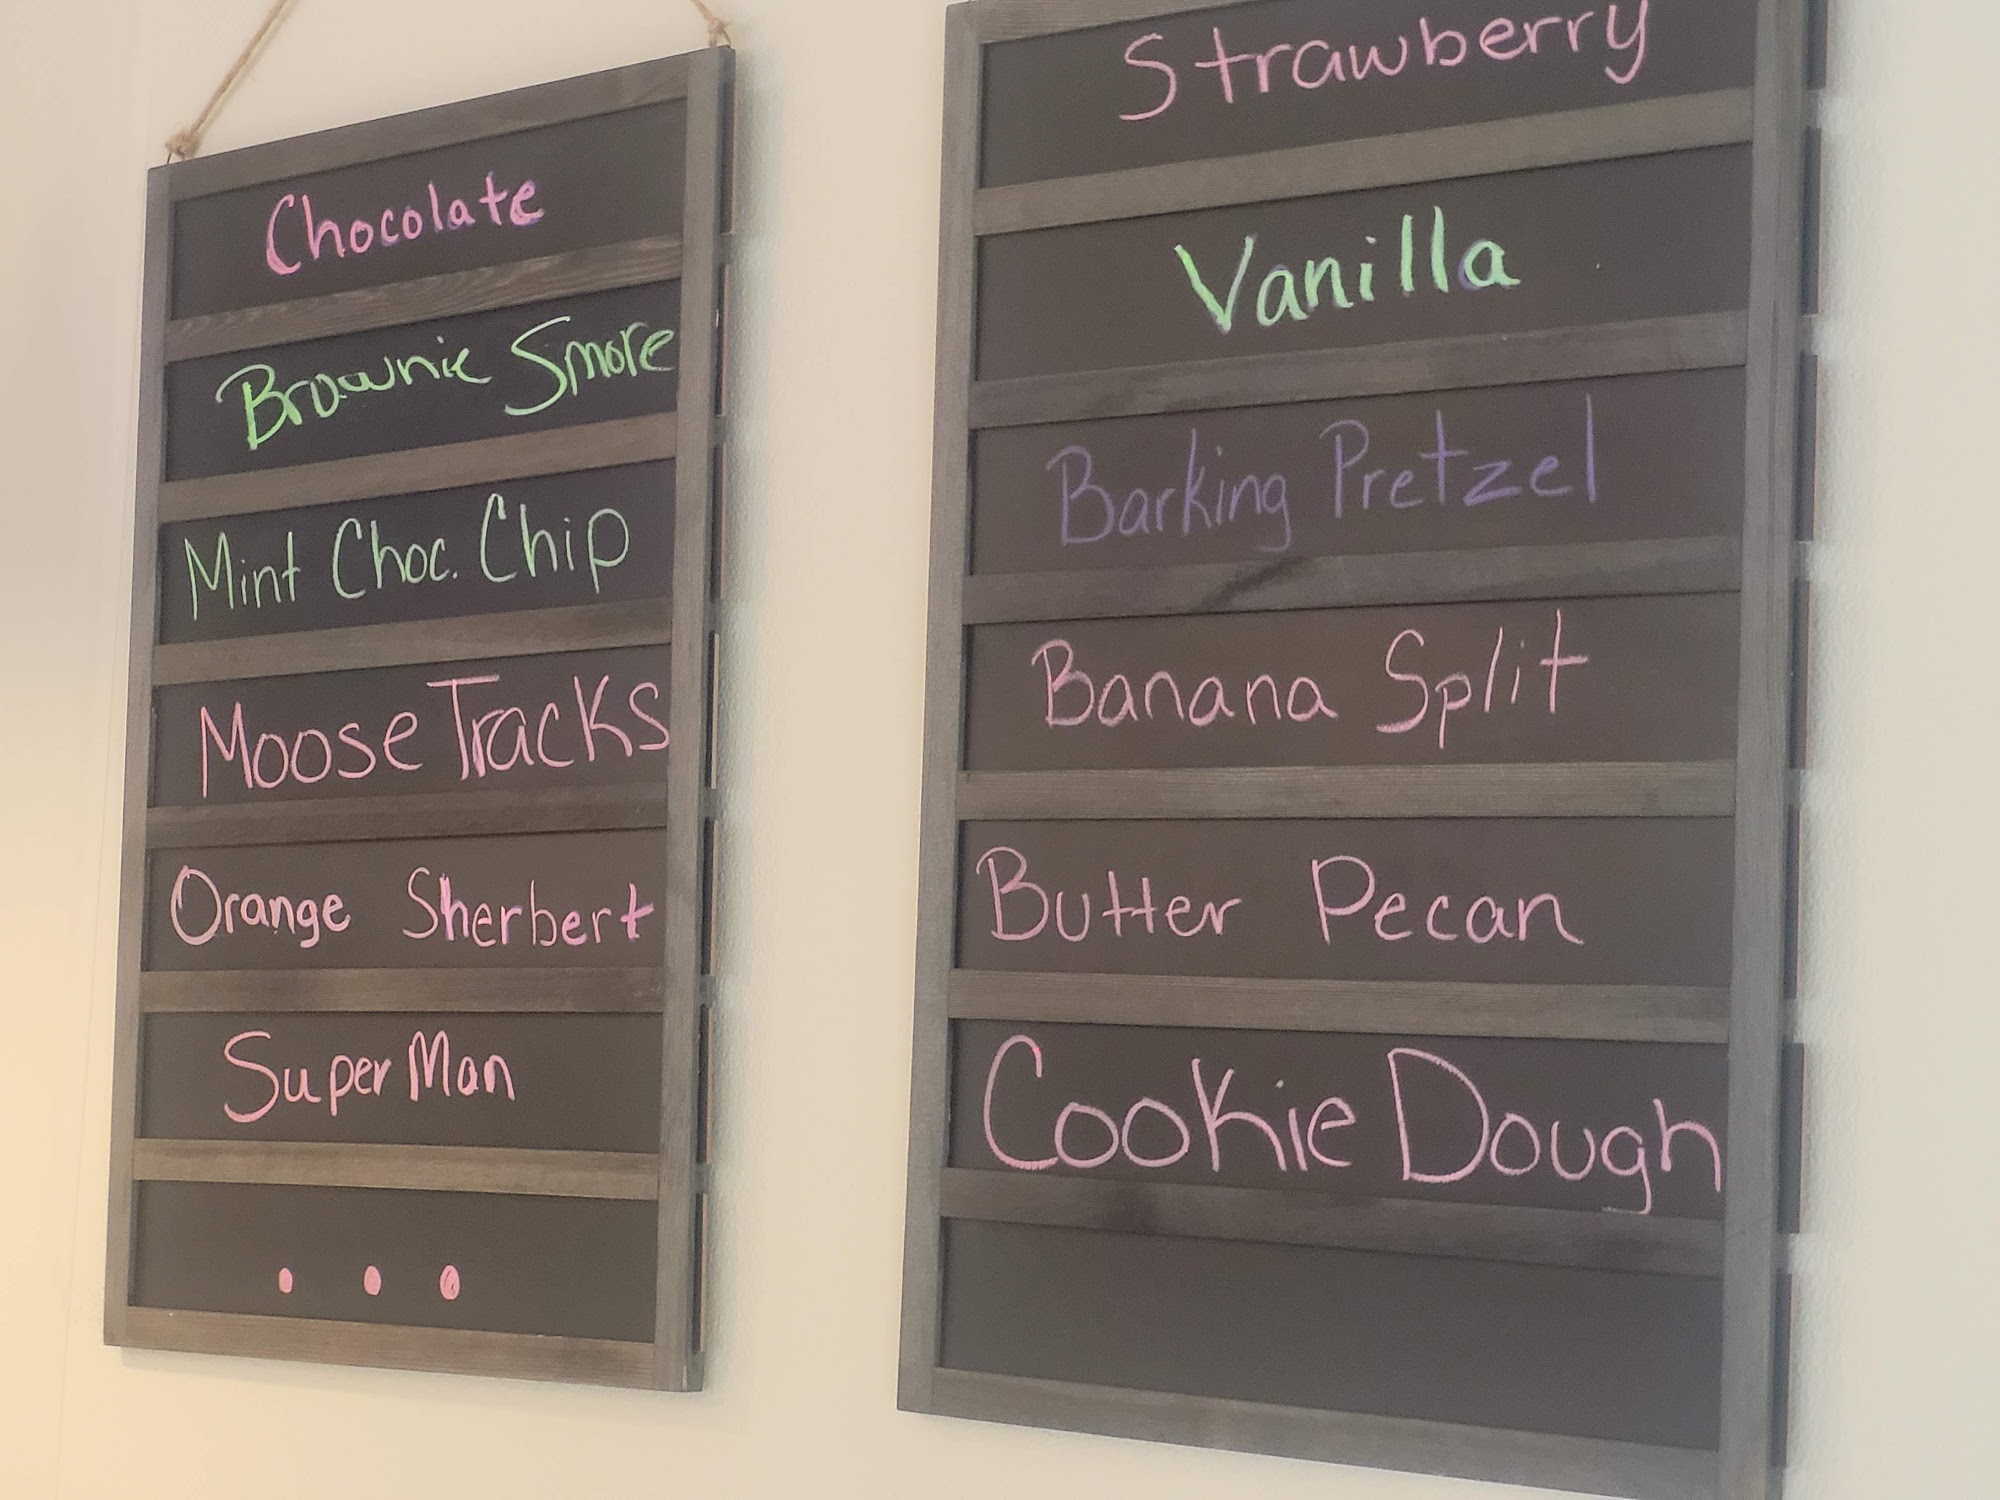 Chocolate
Brownie Smore
Mint Choc. Chip
Moose Tracks
Orange Sherbert
Super Man
...
Strawberry
Vanilla
Barking Pretzel
Banana Split
Butter Pecan
Cookie Dough